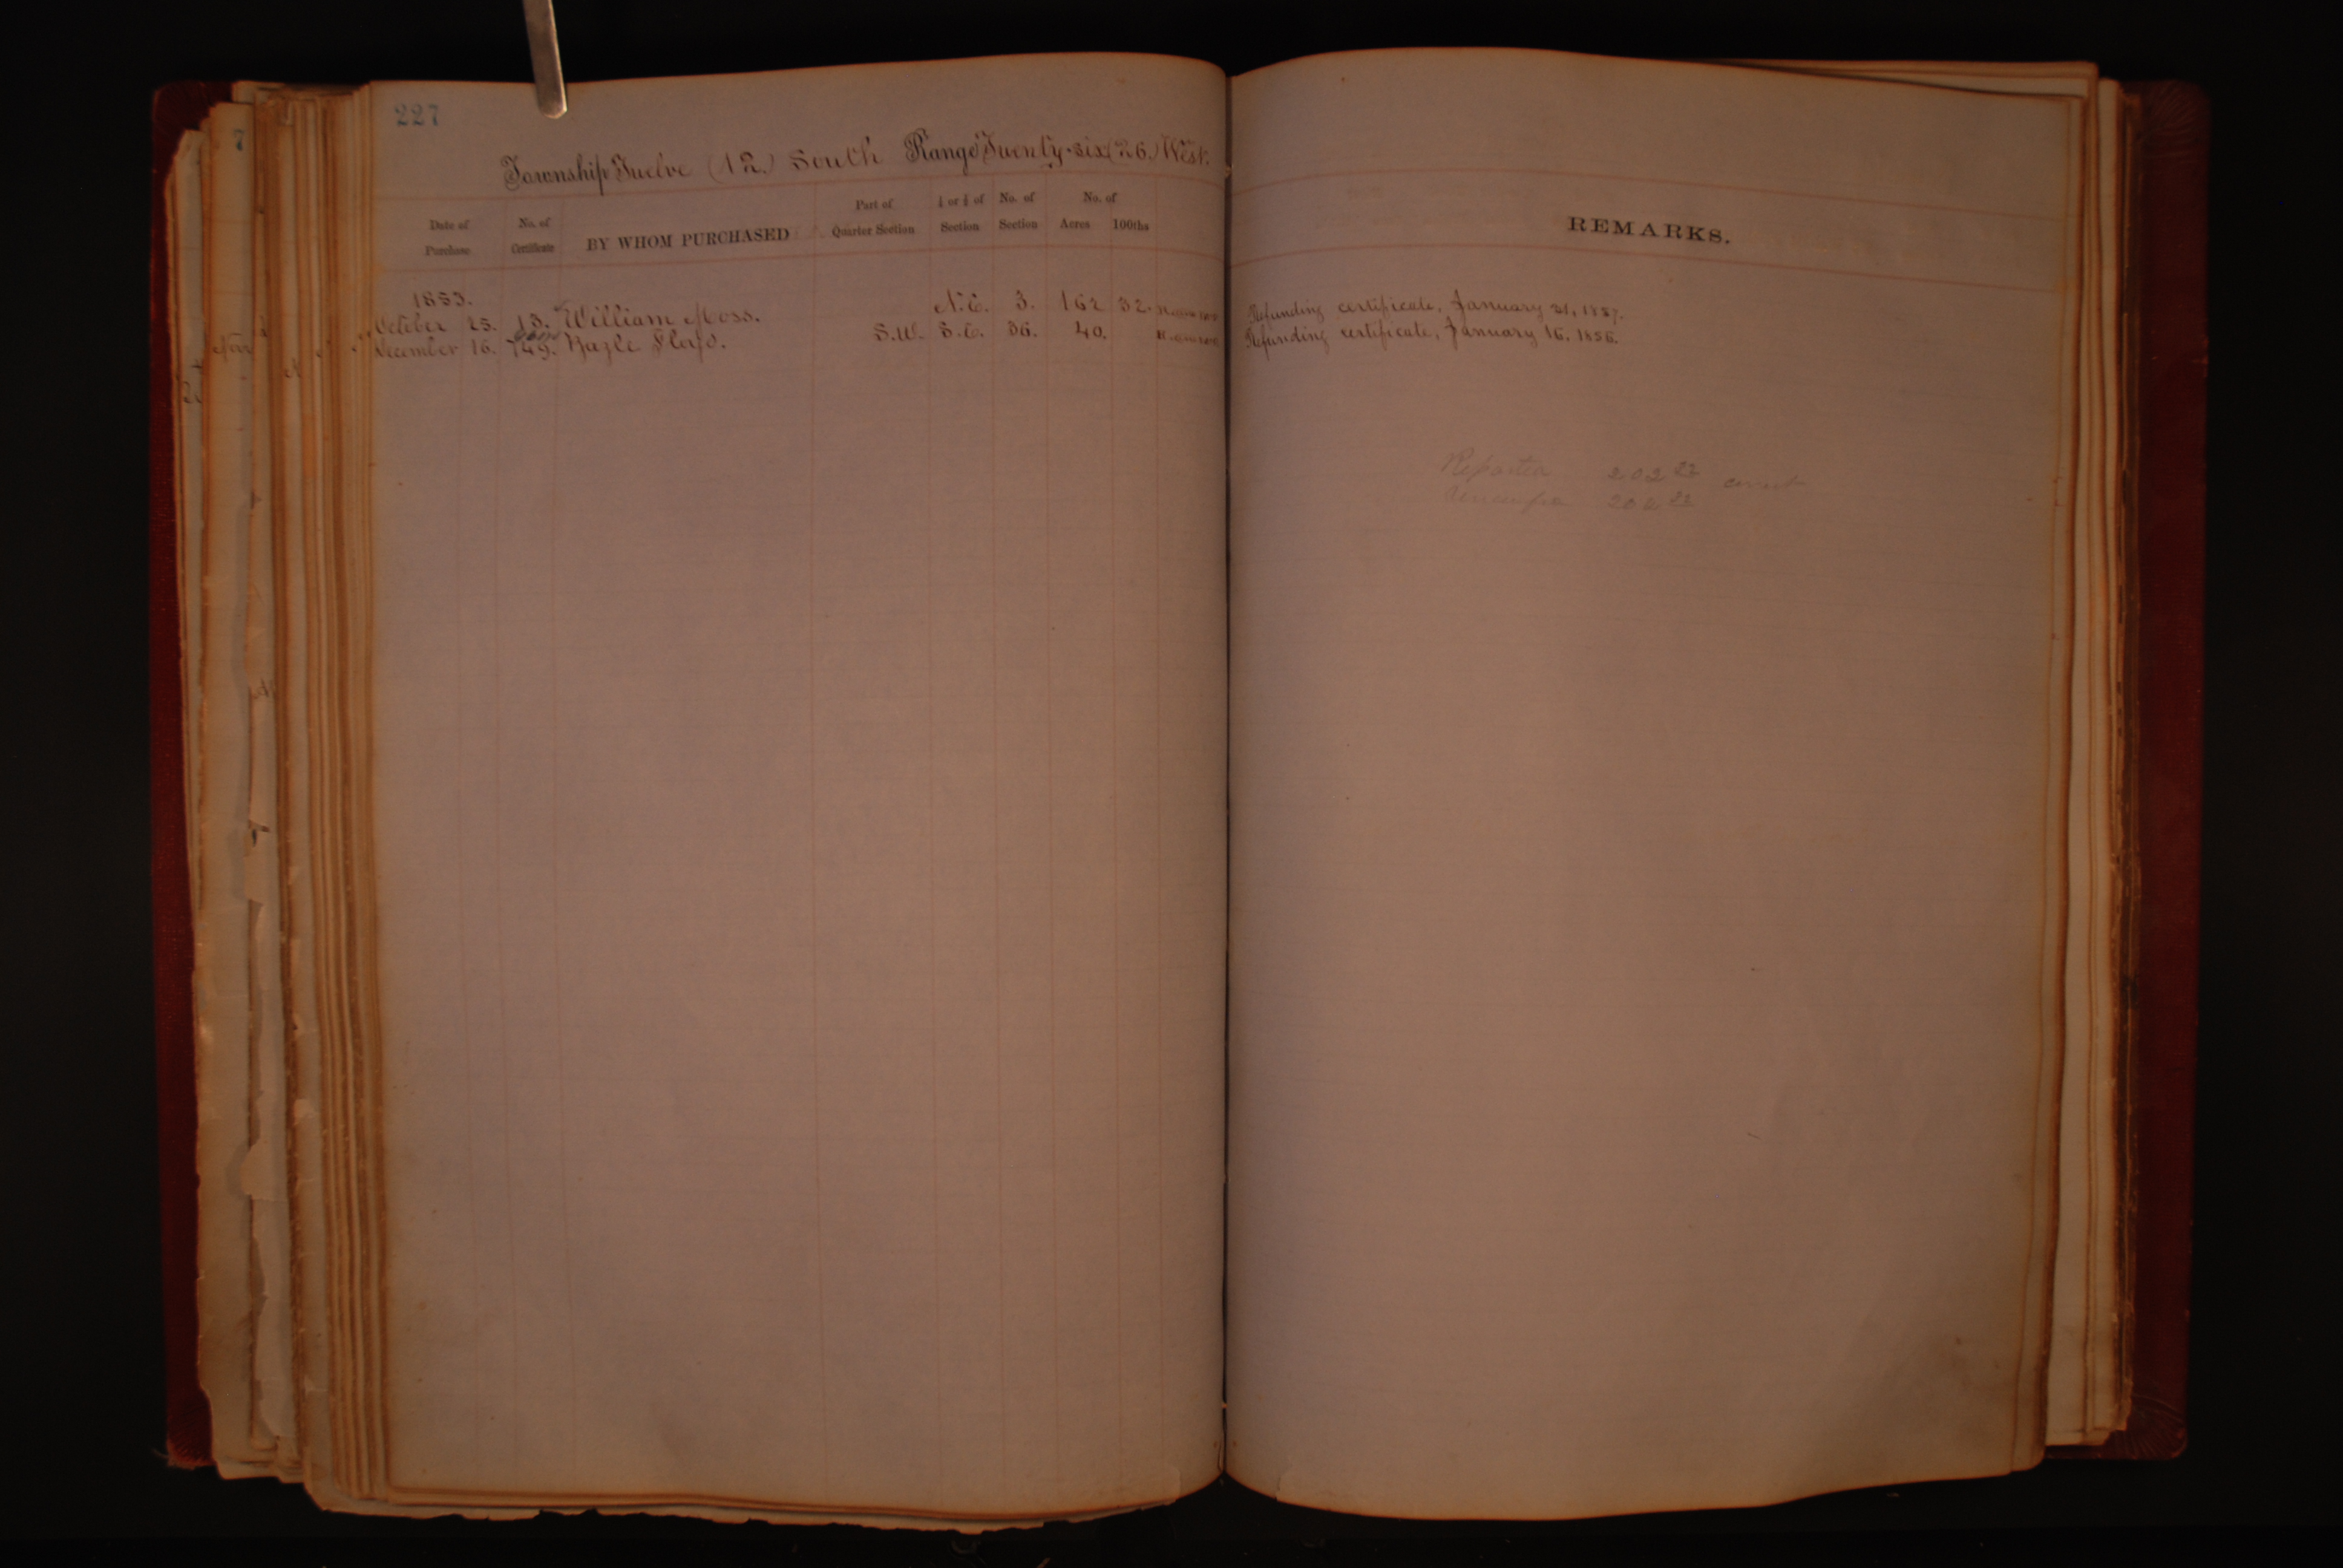 227
7
Township Twelve (12.) South Range Twenty-six (26.) West.
Date of Purchase No. of Certificate BY WHOM PURCHASED Part of Quarter Section ¼ or ½ of Section No. of Section No. of Acres 100ths
REMARKS.
1853.
October 25. 13. William Moss. N.E. 3. 162 32. Refunding certificate, January 31, 1857.
December 16. 749. Bazle Floyd. S.W. S.E. 36. 40. Refunding certificate, January 16, 1856.
Reported 202 32 correct
202 32